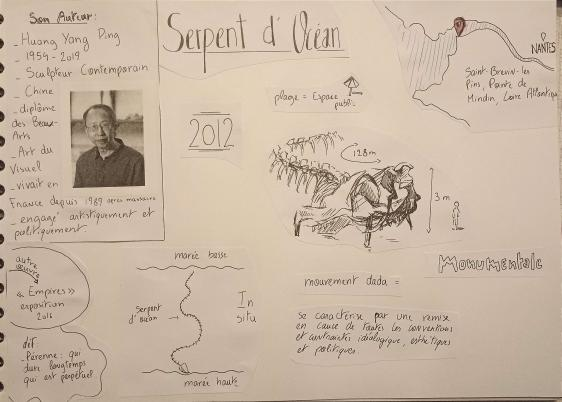 Son Auteur:
- Huang Yong Ping
- 1954 - 2019
- Sculpteur Contemporain
- Chine
- diplômé
des Beaux-
Arts
- Art du
Visuel
- vivait en
France depuis 1989 après massacre
- engagé artistiquement et
politiquement
Serpent d'Océan
2012
plage = Espace
public
NANTES
Saint-Brevin-les
Pins, Pointe de
Mindin, Loire Atlantique
128m
3 m
Monumentale
autre
œuvre
« Empires »
exposition
2016
déf
- Pérenne: qui
dure longtemps
qui est perpétuel
marée basse
Serpent
d'Océan
In
situ
marée haute
mouvement dada =
se caractérise par une remise
en cause de toutes les conventions
et contraintes idéologique, esthétiques
et politiques.